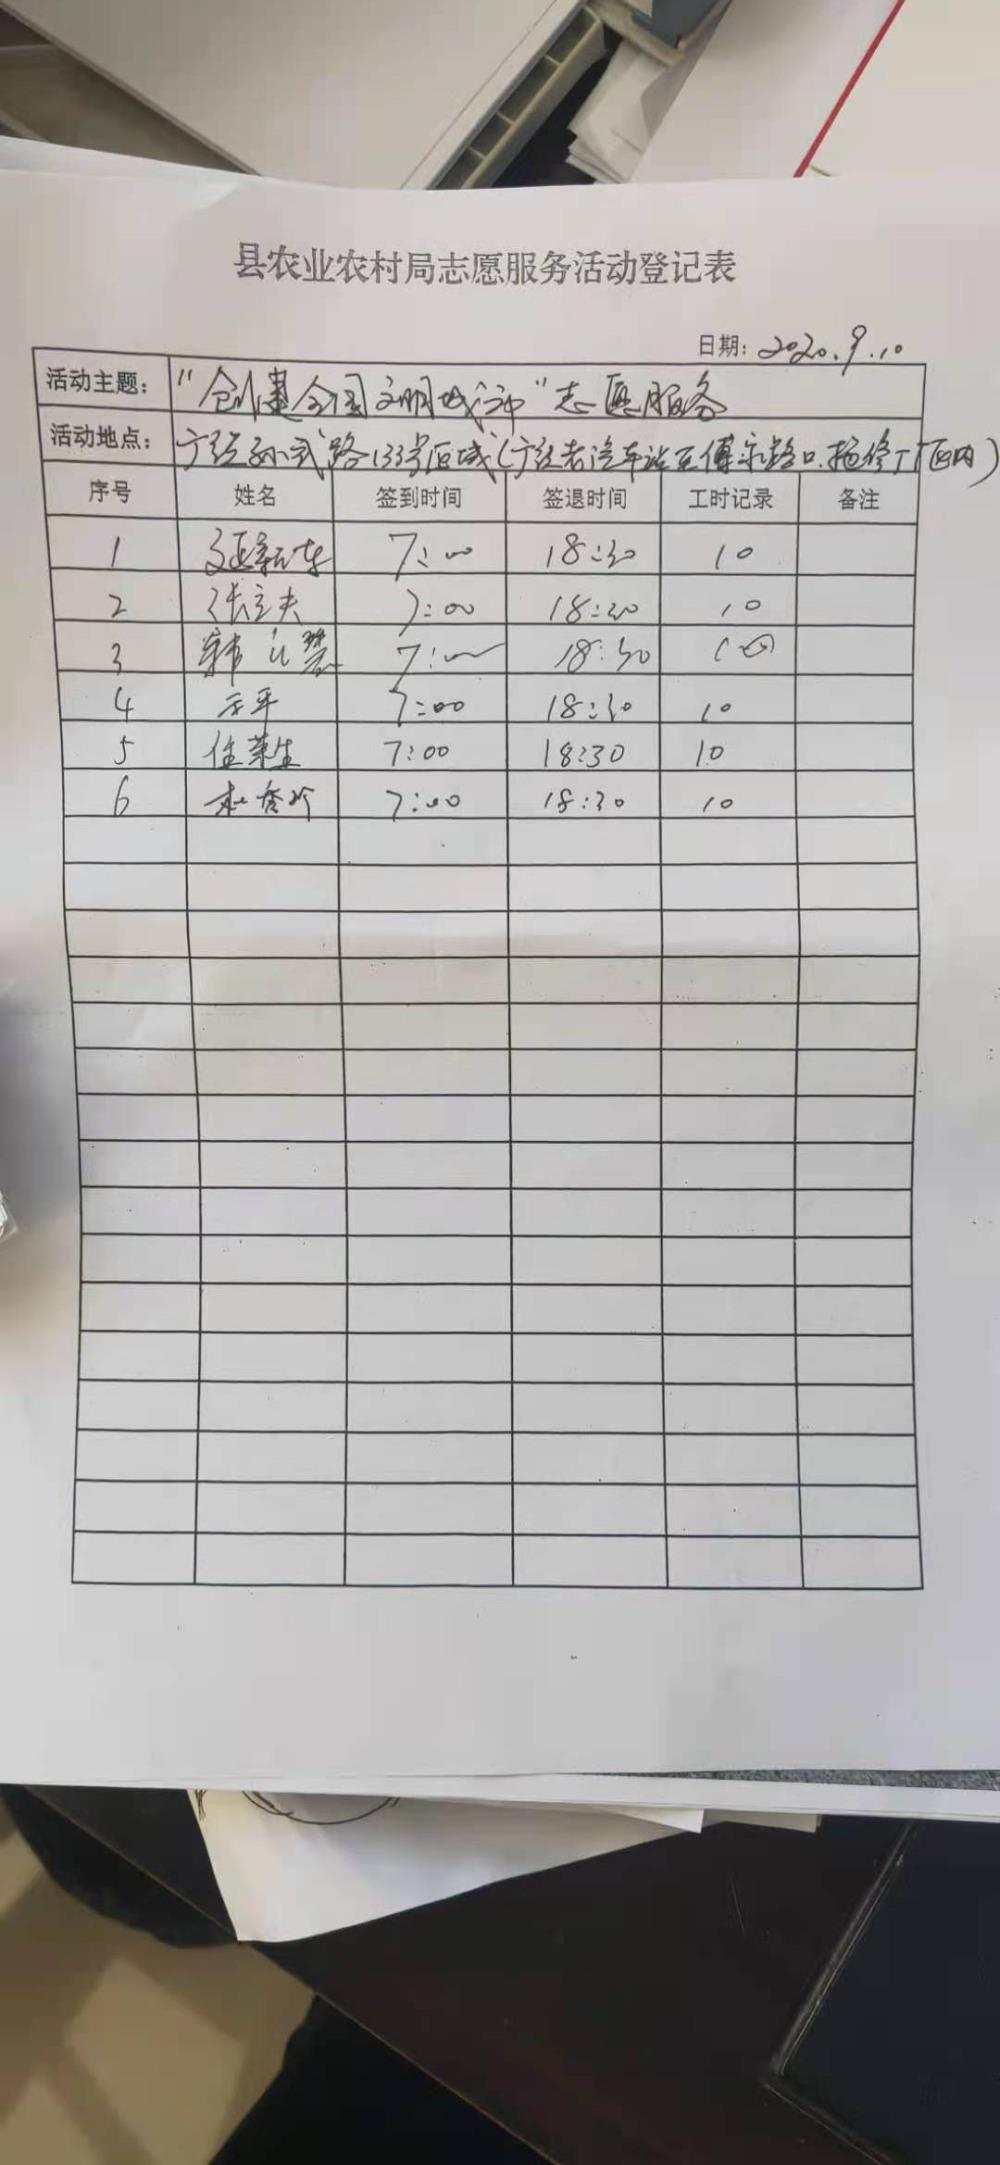 县农业农村局志愿服务活动登记表
日期: 2020.9.10
活动主题: "创建全国文明城市"志愿服务
活动地点: 广饶孙武路133号区域(广饶老汽车站至傅家路口.拖修厂区内)
序号 姓名 签到时间 签退时间 工时记录 备注
1 7:00 18:30 10
2 张立夫 7:00 18:30 10
3 7:00 18:30 10
4 7:00 18:30 10
5 任荣生 7:00 18:30 10
6 7:00 18:30 10